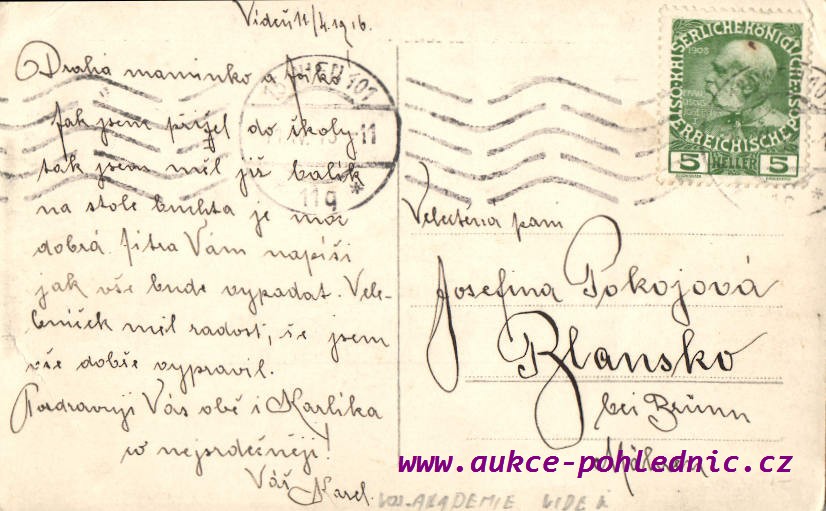 Vídeň 11/4.1916.
Drahá maminko a
Jak jsem přijel do školy
tak jsem měl již balík
na stole buchta je moc
dobrá. Jitra Vám napíši
jak vše bude vypadat. Vele-
bníček měl radost, že jsem
vše dobře vypravil.
Pozdravuji Vás obě i Karlíka
co nejsrdečněji!
Váš Karel.
WIEN 101
11
119
*
K.K. ÖST. KAISERLICHE KÖNIGLICHE
1908
ÖSTERREICHISCHE
5 HELLER 5
Veletěná paní
Josefina Pokojová
Blansko
bei Brünn
Mähren
www.aukce-pohlednic.cz
VOJ. AKADEMIE VIDEŇ